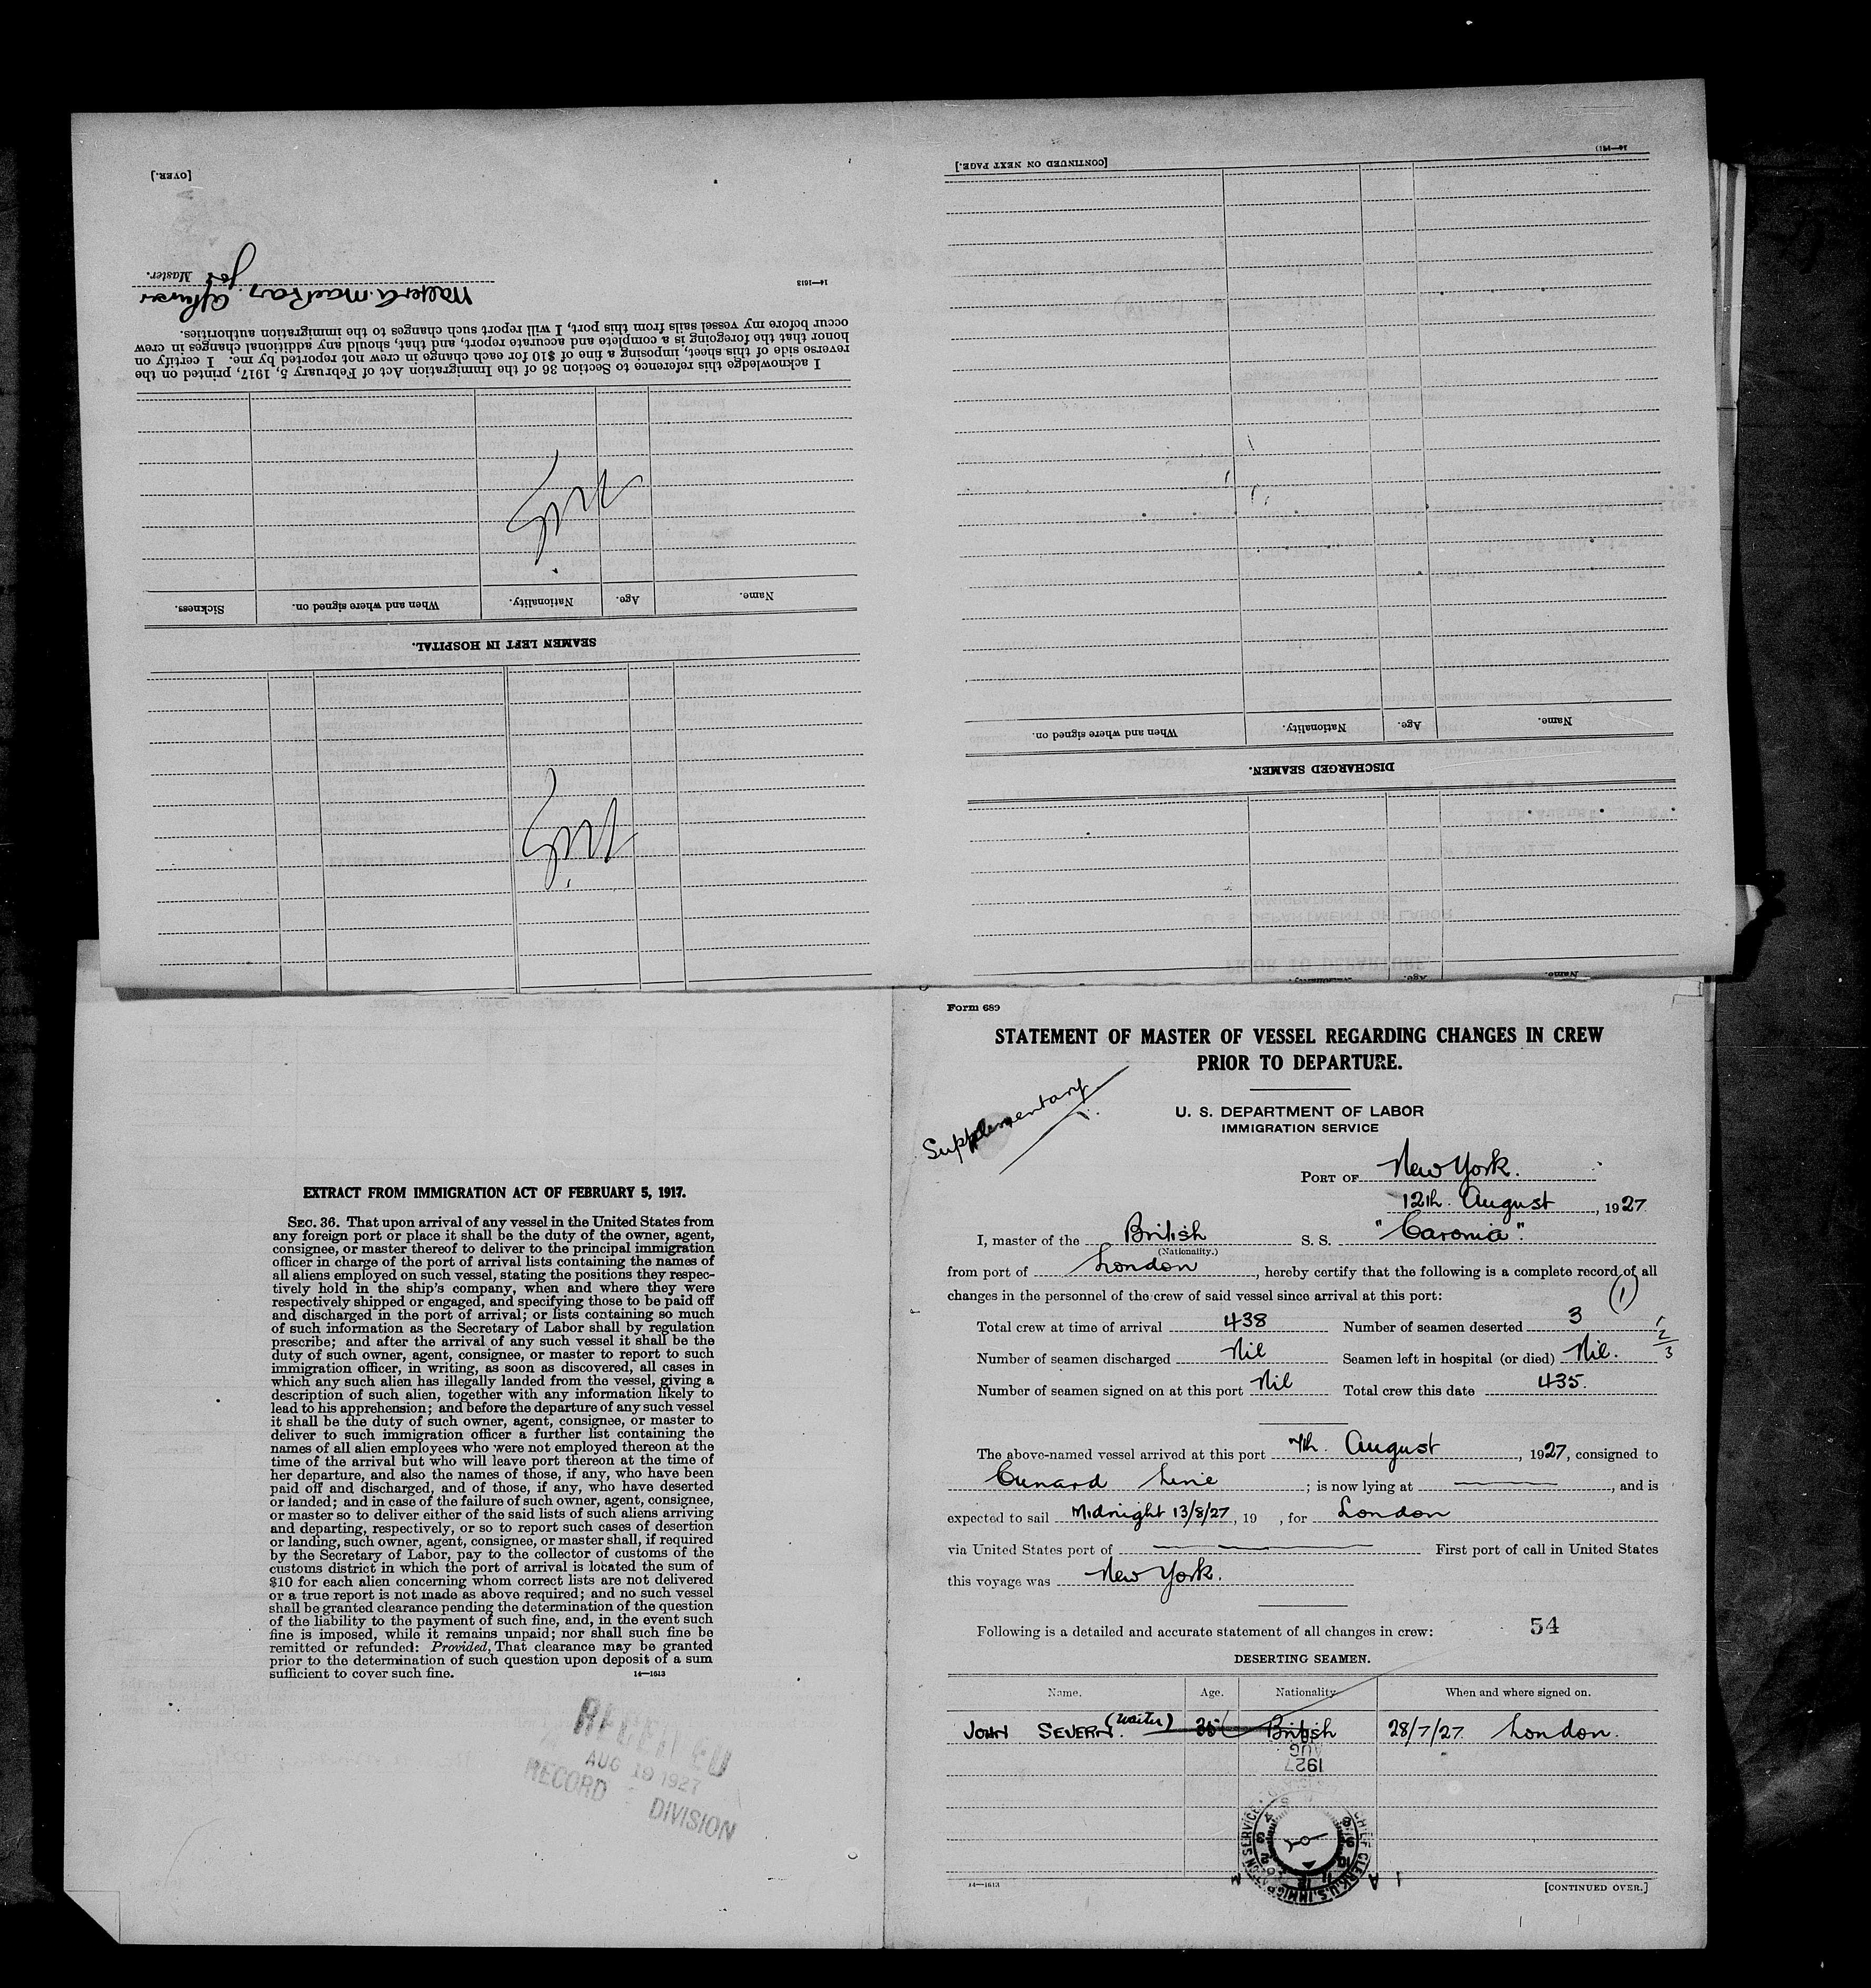 [OVER.]
Master.
14—1613
I acknowledge this reference to Section 36 of the Immigration Act of February 5, 1917, printed on the
reverse side of this sheet, imposing a fine of $10 for each change in crew not reported by me. I certify on
honor that the foregoing is a complete and accurate report, and that, should any additional changes in crew
occur before my vessel sails from this port, I will report such changes to the immigration authorities.
Name. Age. Nationality. When and where signed on. Sickness.
SEAMEN LEFT IN HOSPITAL.
[CONTINUED ON NEXT PAGE.]
Name. Age. Nationality. When and where signed on.
DISCHARGED SEAMEN.
Name. Age. Nationality.
EXTRACT FROM IMMIGRATION ACT OF FEBRUARY 5, 1917.
SEC. 36. That upon arrival of any vessel in the United States from
any foreign port or place it shall be the duty of the owner, agent,
consignee, or master thereof to deliver to the principal immigration
officer in charge of the port of arrival lists containing the names of
all aliens employed on such vessel, stating the positions they respec-
tively hold in the ship's company, when and where they were
respectively shipped or engaged, and specifying those to be paid off
and discharged in the port of arrival; or lists containing so much
of such information as the Secretary of Labor shall by regulation
prescribe; and after the arrival of any such vessel it shall be the
duty of such owner, agent, consignee, or master to report to such
immigration officer, in writing, as soon as discovered, all cases in
which any such alien has illegally landed from the vessel, giving a
description of such alien, together with any information likely to
lead to his apprehension; and before the departure of any such vessel
it shall be the duty of such owner, agent, consignee, or master to
deliver to such immigration officer a further list containing the
names of all alien employees who were not employed thereon at the
time of the arrival but who will leave port thereon at the time of
her departure, and also the names of those, if any, who have been
paid off and discharged, and of those, if any, who have deserted
or landed; and in case of the failure of such owner, agent, consignee,
or master so to deliver either of the said lists of such aliens arriving
and departing, respectively, or so to report such cases of desertion
or landing, such owner, agent, consignee, or master shall, if required
by the Secretary of Labor, pay to the collector of customs of the
customs district in which the port of arrival is located the sum of
$10 for each alien concerning whom correct lists are not delivered
or a true report is not made as above required; and no such vessel
shall be granted clearance pending the determination of the question
of the liability to the payment of such fine, and, in the event such
fine is imposed, while it remains unpaid; nor shall such fine be
remitted or refunded: Provided, That clearance may be granted
prior to the determination of such question upon deposit of a sum
sufficient to cover such fine. 14—1613
RECEIVED
AUG 19 1927
RECORD DIVISION
Form 689
STATEMENT OF MASTER OF VESSEL REGARDING CHANGES IN CREW
PRIOR TO DEPARTURE.
Supplementary
U. S. DEPARTMENT OF LABOR
IMMIGRATION SERVICE
PORT OF New York.
12th. August, 1927
I, master of the British S. S. "Caronia".
(Nationality.)
from port of London, hereby certify that the following is a complete record of all
changes in the personnel of the crew of said vessel since arrival at this port: (1)
Total crew at time of arrival 438 Number of seamen deserted 3
Number of seamen discharged Nil Seamen left in hospital (or died) Nil. 1 2 3
Number of seamen signed on at this port Nil Total crew this date 435.
The above-named vessel arrived at this port 7th. August, 1927, consigned to
Cunard Line; is now lying at ———, and is
expected to sail Midnight 13/8/27, 19 , for London
via United States port of ——— First port of call in United States
this voyage was New York.
Following is a detailed and accurate statement of all changes in crew: 54
DESERTING SEAMEN.
Name. Age. Nationality. When and where signed on.
JOHN SEVERN. (Waiter) 35 British 28/7/27 London.
AUG
1927
CHIEF CLERK, U.S. IMMIGRATION SERVICE
14—1613 [CONTINUED OVER.]